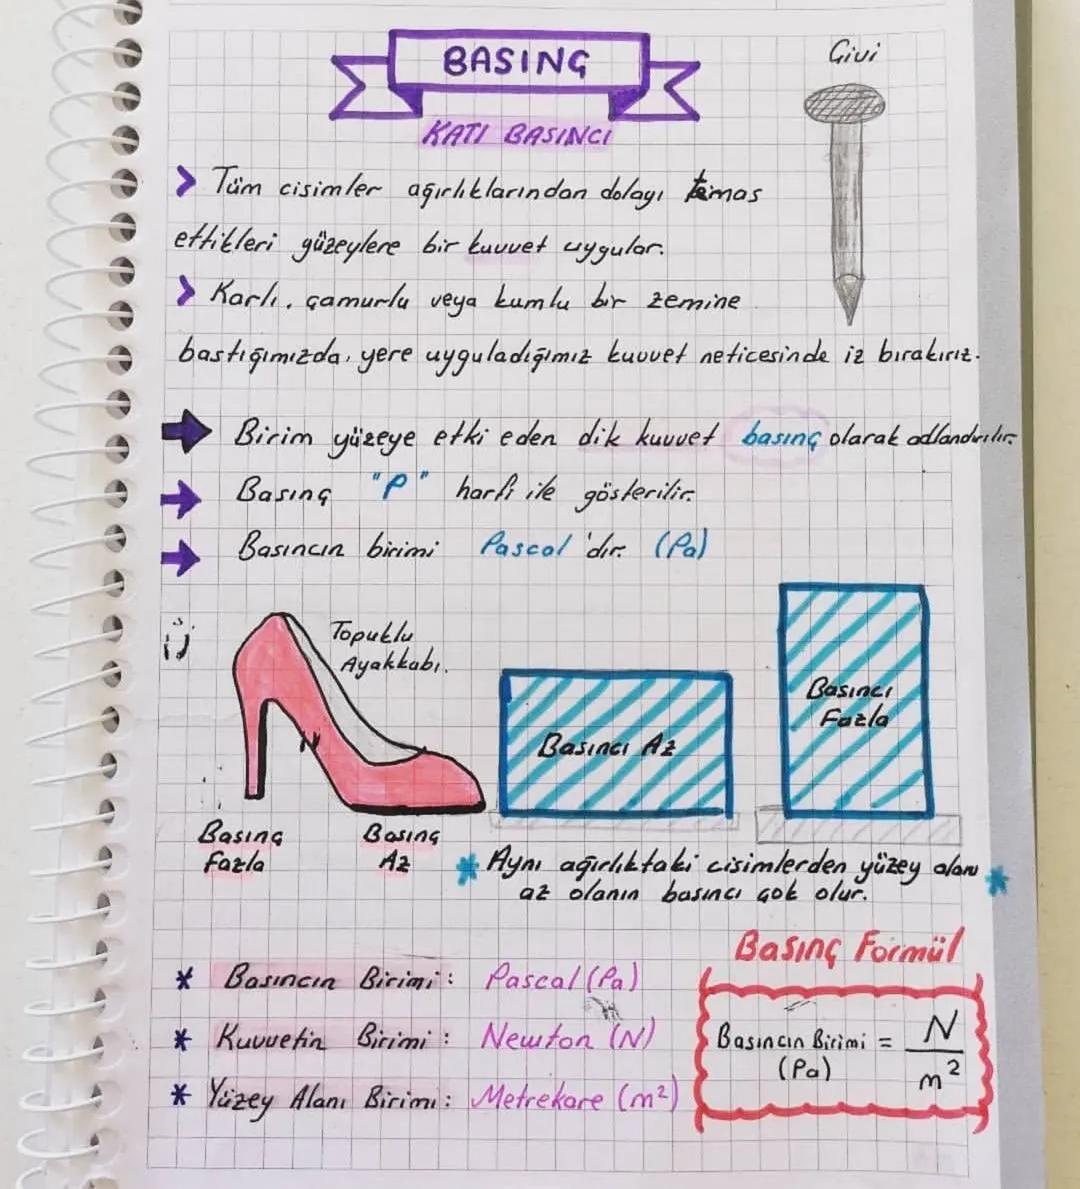 BASINÇ
Çivi
KATI BASINCI
> Tüm cisimler ağırlıklarından dolayı temas
ettikleri yüzeylere bir kuvvet uygular.
> Karlı, çamurlu veya kumlu bir zemine
bastığımızda, yere uyguladığımız kuvvet neticesinde iz bırakırız.
→ Birim yüzeye etki eden dik kuvvet basınç olarak adlandırılır.
→ Basınç "P" harfi ile gösterilir.
→ Basıncın birimi Pascal'dır. (Pa)
Topuklu
Ayakkabı.
Basıncı Az
Basıncı
Fazla
Basınç
fazla
Basınç
Az
* Aynı ağırlıktaki cisimlerden yüzey alanı *
az olanın basıncı çok olur.
Basınç Formül
* Basıncın Birimi: Pascal (Pa)
* Kuvvetin Birimi: Newton (N)
* Yüzey Alanı Birimi: Metrekare (m²)
Basıncın Birimi = N
(Pa) m²